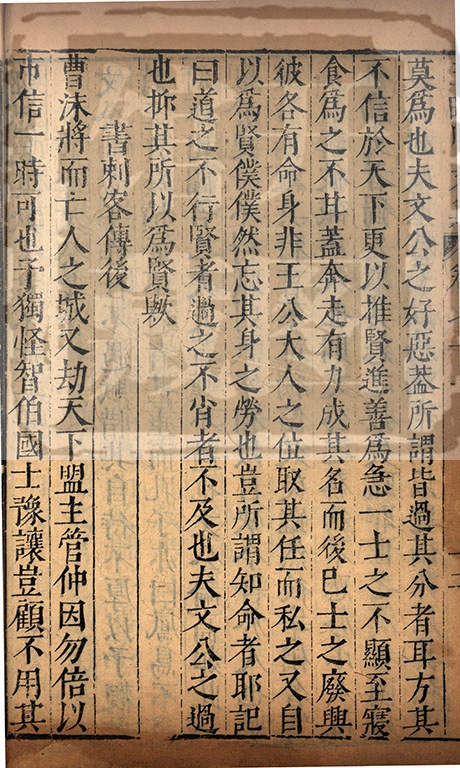 莫為也夫文公之好惡葢所謂皆過其分者耳方其
不信於天下更以推賢進善為急一士之不顯至寢
食為之不甘蓋奔走有力成其名而後已士之廢興
彼各有命身非王公大人之位取其任而私之又自
以為賢僕僕然忘其身之勞也豈所謂知命者耶記
曰道之不行賢者過之不肖者不及也夫文公之過
也抑其所以為賢歟
書刺客傳後
曹沫將而亡人之城又劫天下盟主管仲因勿倍以
市信一時可也予獨怪智伯國士豫讓豈顧不用其